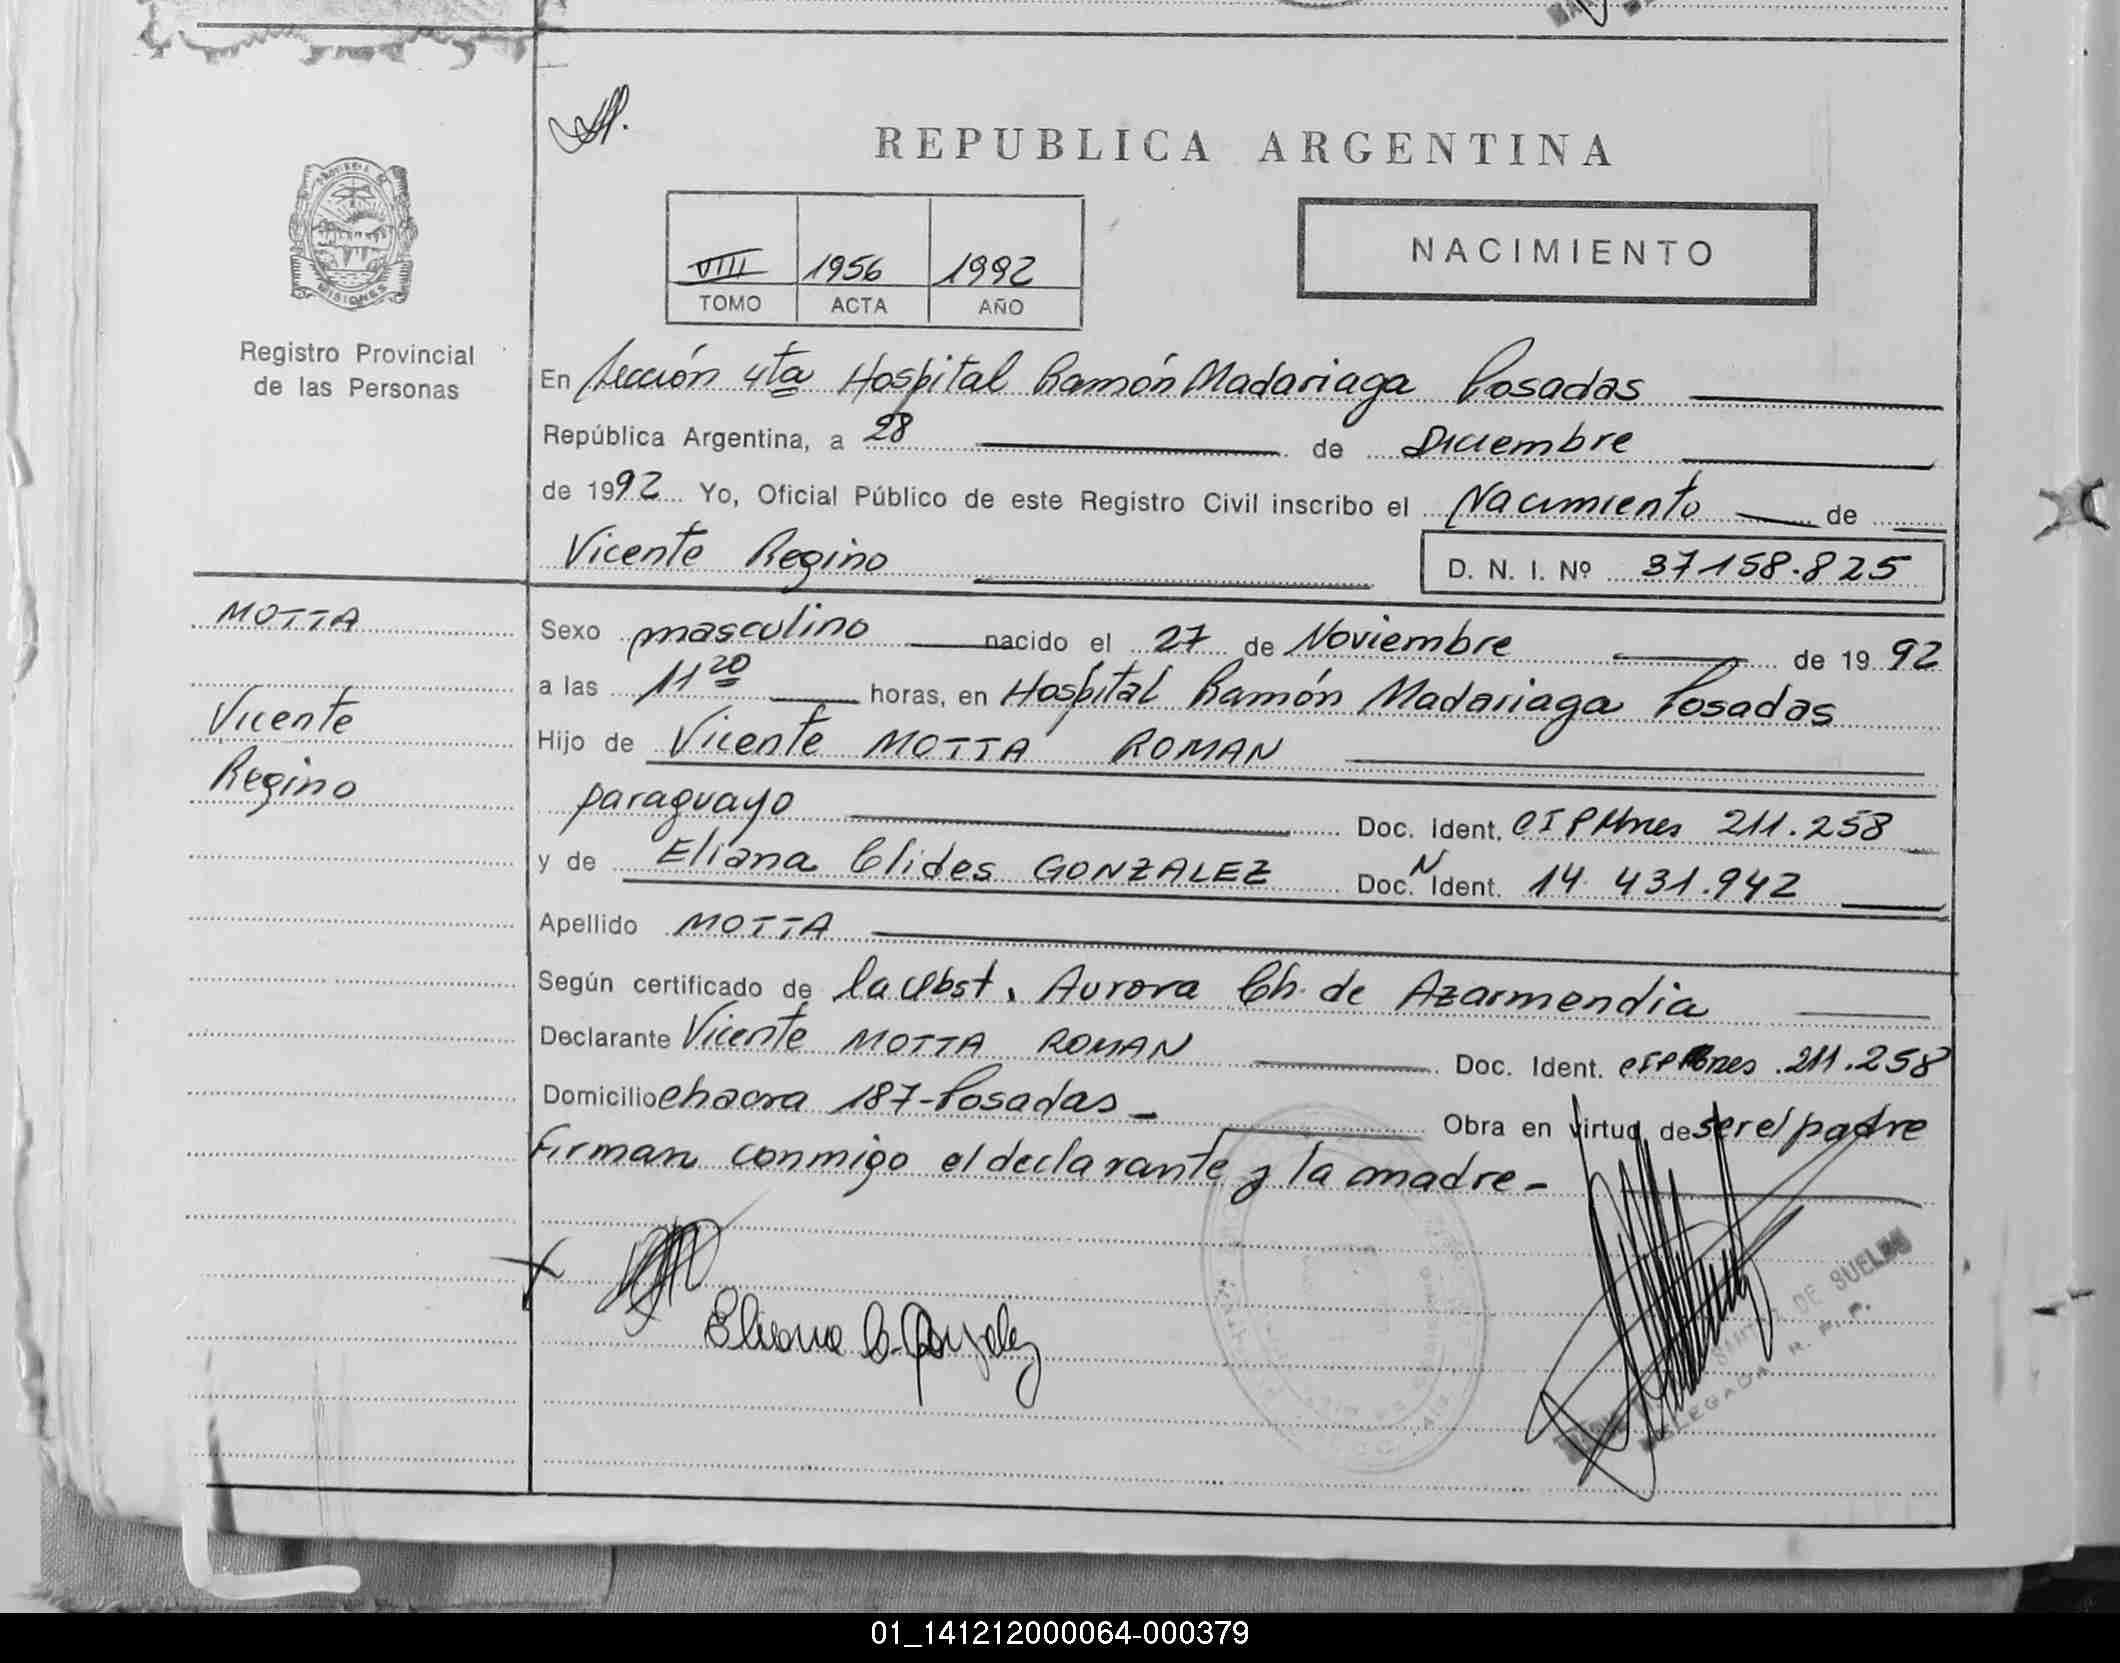 REPUBLICA ARGENTINA
VIII 1956 1992
TOMO ACTA AÑO
NACIMIENTO
MISIONES
Registro Provincial
de las Personas
En Sección 4ta Hospital Ramón Madariaga Posadas
República Argentina, a 28 de Diciembre
de 1992 Yo, Oficial Público de este Registro Civil inscribo el Nacimiento de
Vicente Regino D. N. I. Nº 37158.825
MOTTA
Vicente
Regino
Sexo masculino nacido el 27 de Noviembre de 1992
a las 11 20 horas, en Hospital Ramón Madariaga Posadas
Hijo de Vicente MOTTA ROMAN
paraguayo Doc. Ident. CIPMnes 211.258
y de Eliana Clides GONZALEZ Doc. N Ident. 14 431.942
Apellido MOTTA
Según certificado de la Obst. Aurora Ch. de Azarmendia
Declarante Vicente MOTTA ROMAN Doc. Ident. CIPMnes 211.258
Domicilio chacra 187-Posadas- Obra en virtud de ser el padre
Firman conmigo el declarante y la madre-
Eliana C. Gonzalez
DE SUELDO
DELEGADA R. P. P.
01_141212000064-000379